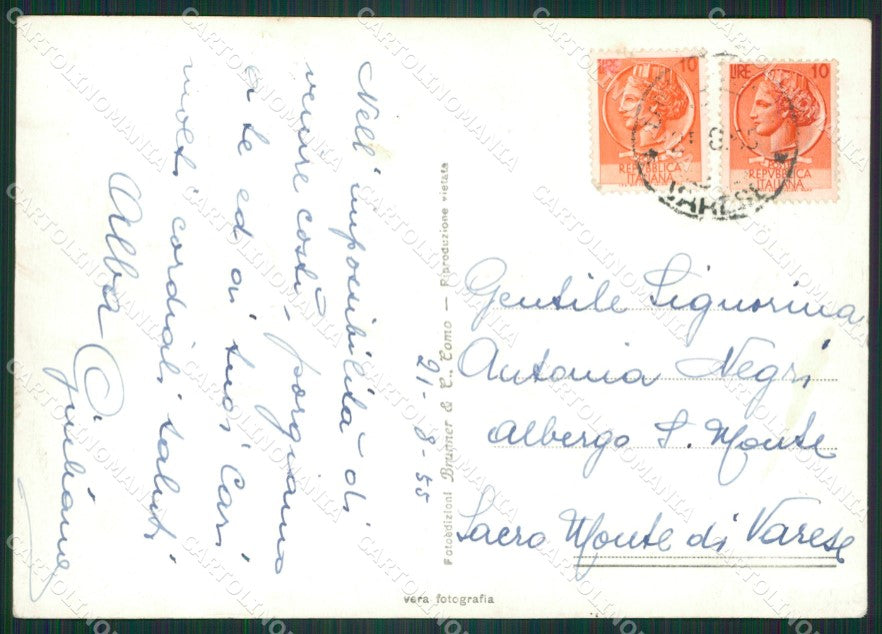 Nell' impossibilità di
venire costì, porgiamo
a te ed ai tuoi Cari
molti cordiali saluti
Alba Giuliana
21-8-55
Fotoedizioni Brunner & C., Como — Riproduzione vietata
vera fotografia
LIRE 10
REPVBBLICA
ITALIANA
LIRE 10
REPVBBLICA
ITALIANA
VARESE
Gentile Signorina
Antonia Negri
Albergo S. Monte
Sacro Monte di Varese
CARTOLINOMANIA